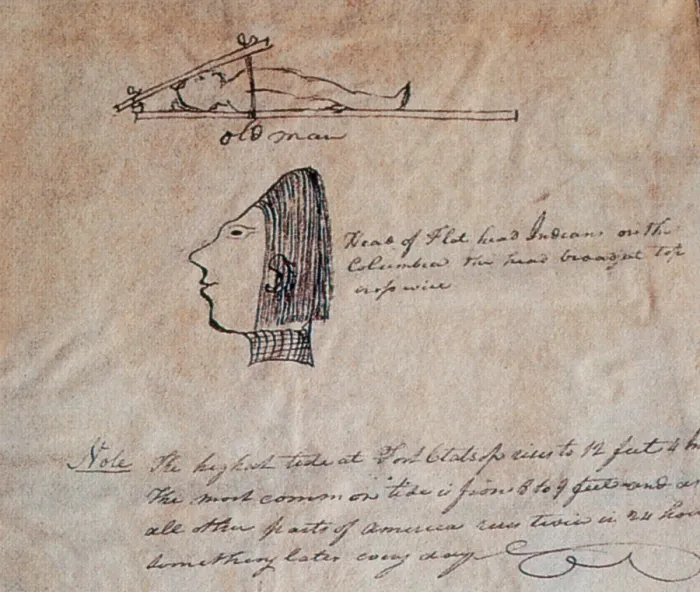 old man
Head of Flat head Indians on the
Columbia the head broad at top
cross wise
Note The highest tide at Fort Clatsop rises to 12 feet 4
The most common tide is from 8 to 9 feet and
all other parts of America runs twice in 24
something later every day